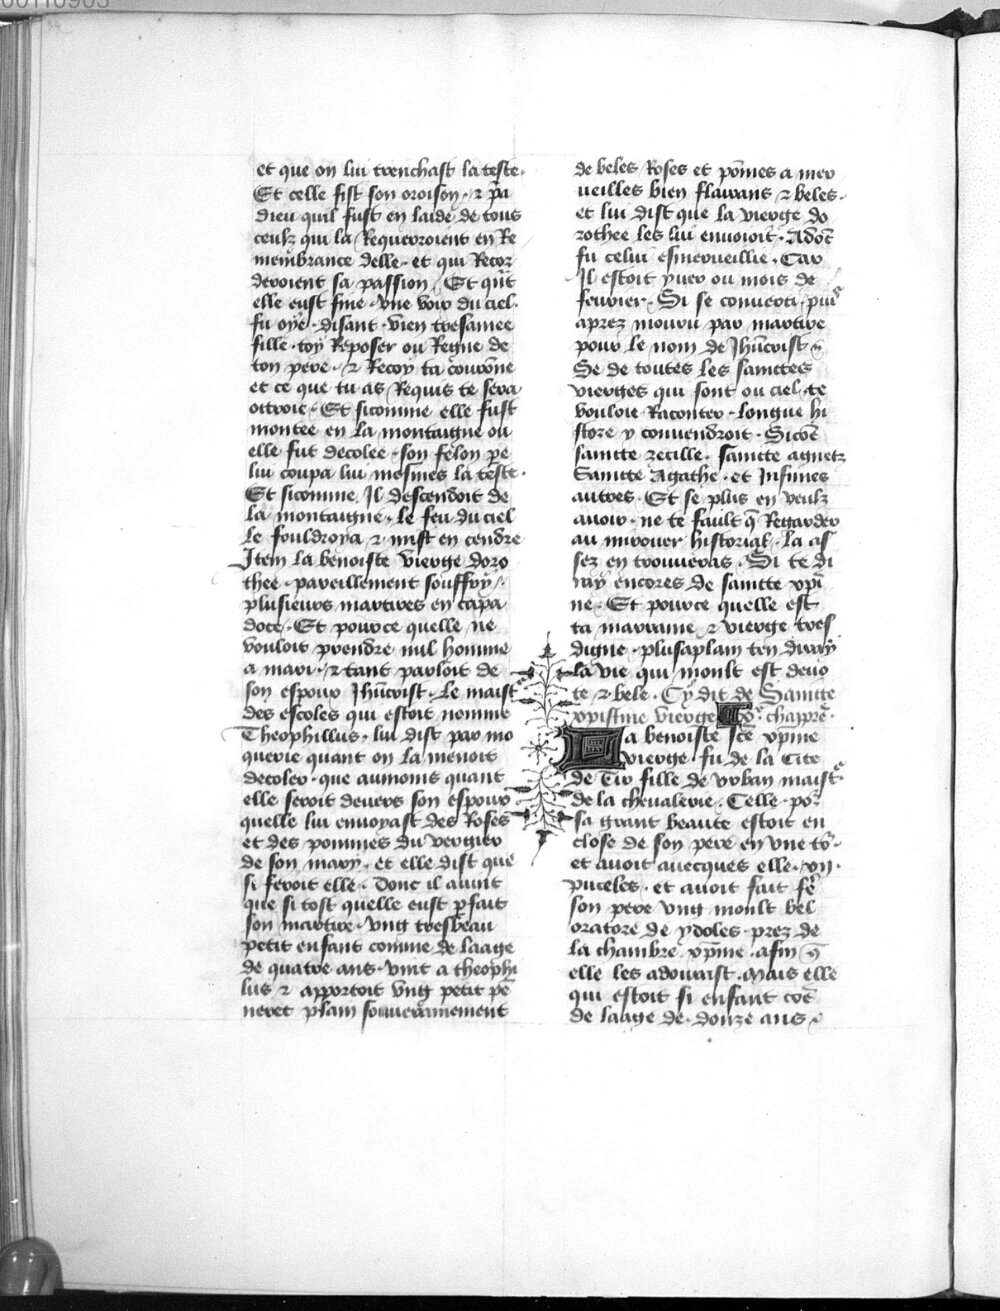 et que on lui trenchast la teste.
Et celle fist son oroison. ⁊ p̃a
dieu quil fust en laide de tous
ceulz qui la Requerroient en Re
membrance delle. et qui Recor
deroient sa passion. Et qñt
elle eust fine. vne voix du ciel.
fu oye. disant. vien tresamee
fille. toy Reposer ou Regne de
ton pere. ⁊ Recoy ta couronne
et ce que tu as Requis te sera
ottroie. Et sicomme elle fust
montee en la montaigne ou
elle fut decolee. son felon pe
lui coupa lui mesmes la teste.
Et sicomme Il descendoit de
la montaigne. le feu du ciel
le fouldroya ⁊ mist en cendre
Item la benoiste vierge doro
thee. pareillement souffry
plusieurs martires en capa
doce. Et pource quelle ne
vouloit prendre nul homme
a mari. ⁊ tant parloit de
son espoux Jhũcrist. le maist̃
des escoles qui estoit nomme
Theophillus. lui dist par mo
querie quant on la menoit
decoler. que aumoins quant
elle seroit deuers son espoux
quelle lui enuoyast des Roses
et des pommes du vergier
de son mary. et elle dist que
si feroit elle. Donc il auint
que si tost quelle eust p̲fait
son martire. vng tresbeau
petit enfant comme de laage
de quatre ans. vint a theophi
lus ⁊ apportoit vng petit pẽ
neret plain souuerainement
de beles Roses et põmes a mer
ueilles bien flairans ⁊ beles.
et lui dist que la vierge do
rothee les lui enuoioit. Adõt
fu celui esmerueillie. Car
Il estoit yuer ou mois de
feurier. Si se conuerti. puis
aprez mouru par martire
pour le nom de Jhũcrist.
Se de toutes les sainctes
vierges qui sont ou ciel. te
vouloie Raconter. longue hi
store y conuendroit. Sicõe
saincte cecille. saincte agnetz
Saincte Agathe. et Infinies
autres. Et se plus en veulz
auoir. ne te fault q̃ Regarder
au mirouer historial. la as
sez en trouueras. Si te di
ray encores de saincte xpĩ
ne. Et pource quelle est
ta marraine ⁊ vierge tres
digne. plusaplain ten diray
la vie qui moult est deuo
te ⁊ bele. Cy dit de Saincte
xpistine vierge x̊. chapp̃re.
La benoiste s̃te xp̃ine
vierge fu de la Cite
de Tir fille de vrban maist̃
de la cheualerie. Celle por
sa grant beaute estoit en
close de son pere en vne to͛.
et auoit auecques elle. xij.
pucelles. et auoit fait fẽ
son pere vng moult bel
oratore de ydoles. prez de
la chambre xp̃ine. afin q̃
elle les adourast. Mais elle
qui estoit si enfant cõe
de laage de. douze ans